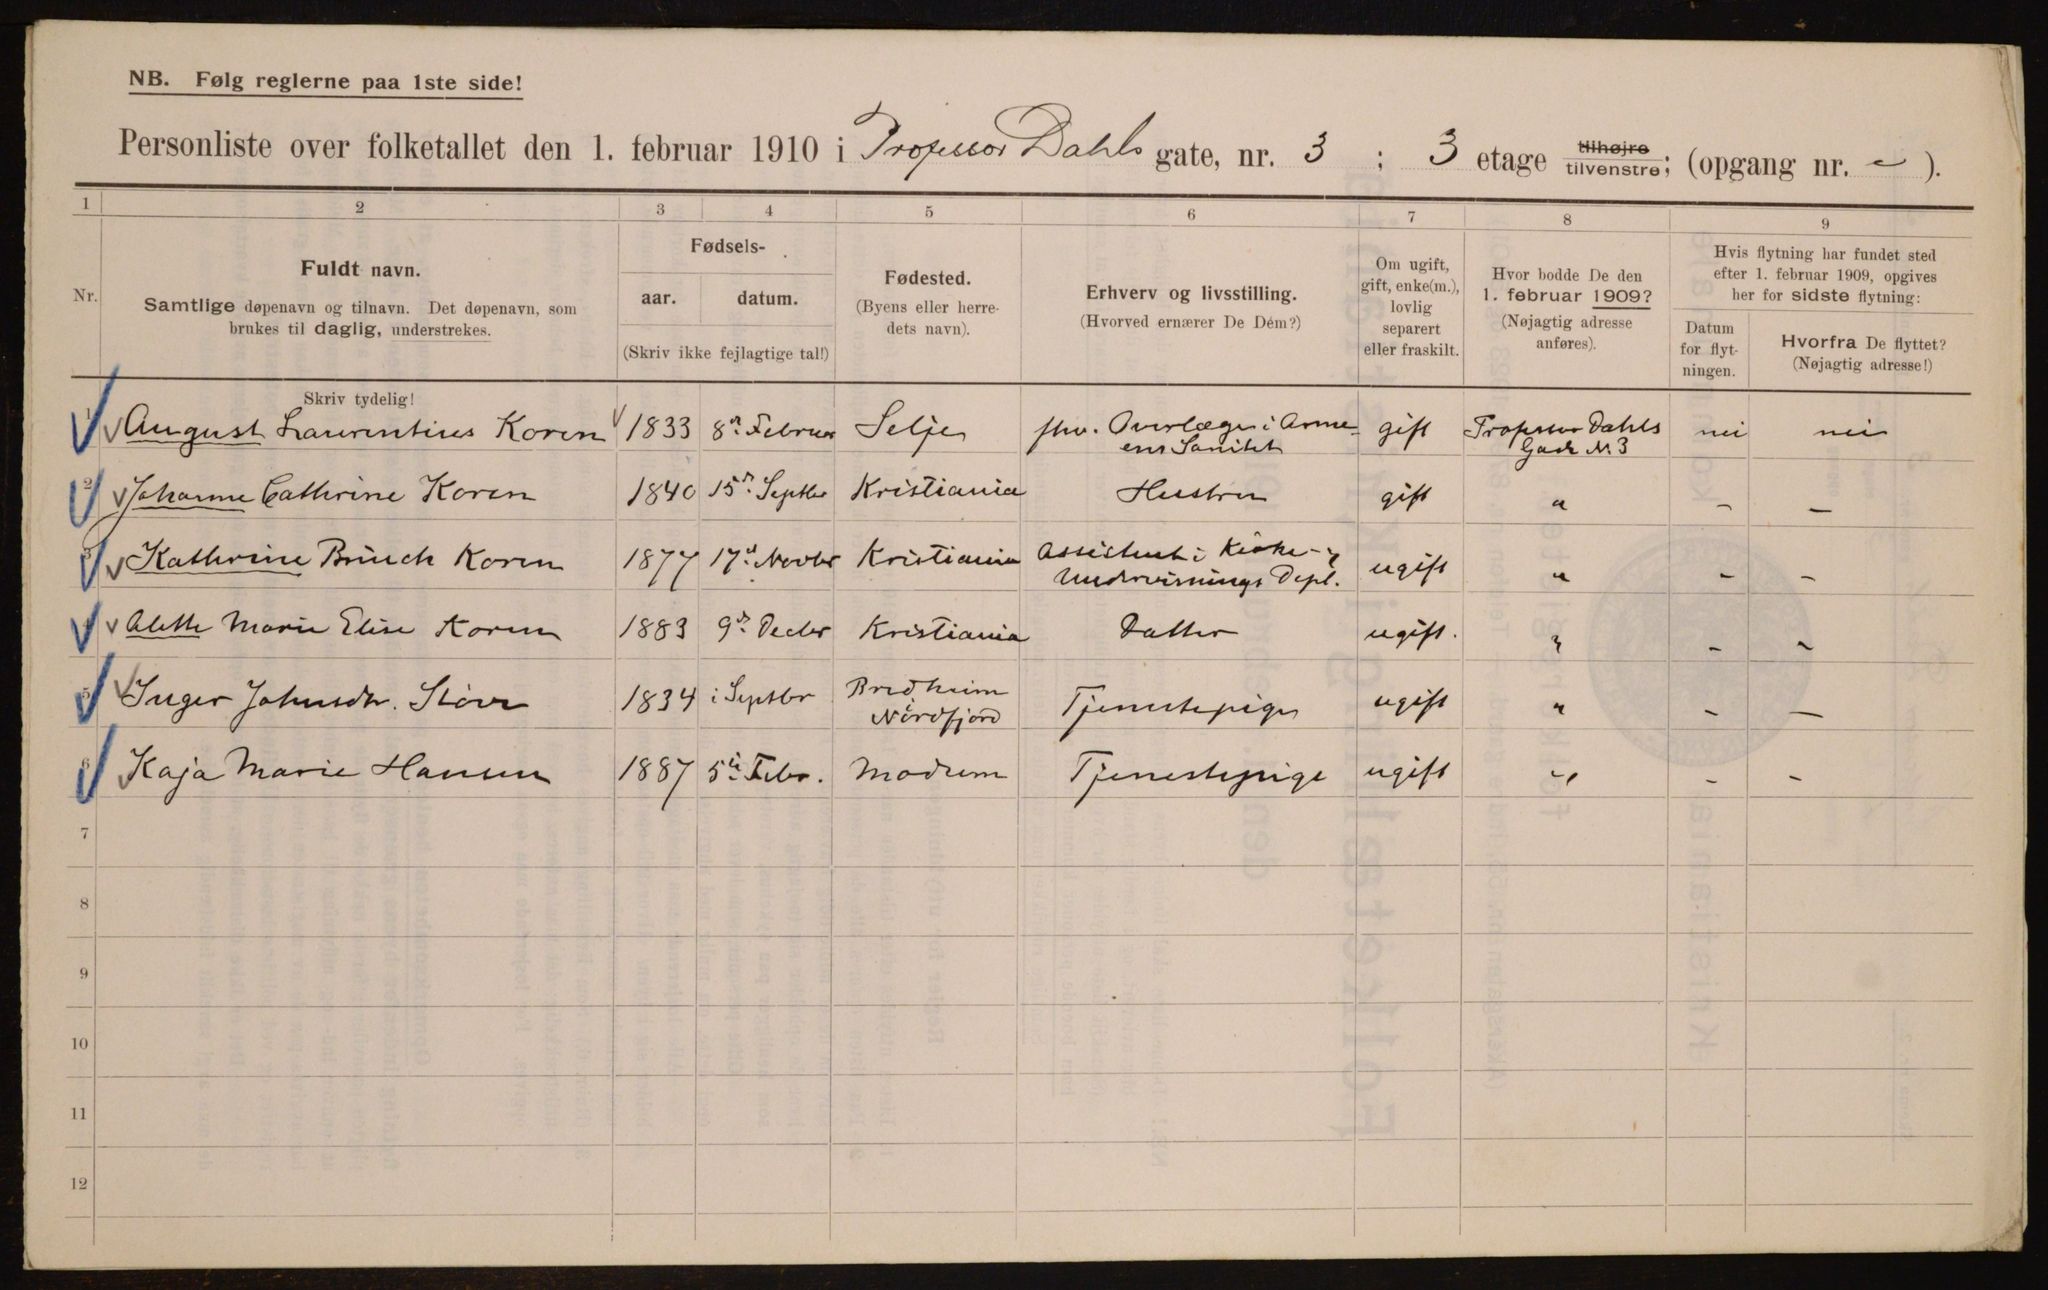 NB. Følg reglerne paa 1ste side!
Personliste over folketallet den 1. februar 1910 i Professor Dahls gate, nr. 3 ; 3 etage tilhøjre tilvenstre; (opgang nr. - ).
1 2 3 4 5 6 7 8 9
Nr.
Fuldt navn.
Samtlige døpenavn og tilnavn. Det døpenavn, som
brukes til daglig, understrekes.
Skriv tydelig!
Fødsels-
aar. datum.
(Skriv ikke fejlagtige tal!)
Fødested.
(Byens eller herre-
dets navn).
Erhverv og livsstilling.
(Hvorved ernærer De Dem?)
Om ugift,
gift, enke(m.),
lovlig
separert
eller fraskilt.
Hvor bodde De den
1. februar 1909?
(Nøjagtig adresse
anføres).
Hvis flytning har fundet sted
efter 1. februar 1909, opgives
her for sidste flytning:
Datum
for flyt-
ningen.
Hvorfra De flyttet?
(Nøjagtig adresse!)
1 August Laurentius Koren 1833 8de Februar Selje fhv. Overlæge i Arme- gift Professor Dahls nei nei
ens Sanitet Gade N. 3
2 Johanne Cathrine Koren 1840 15de Septbr Kristiania Hustru gift " - -
3 Kathrine Bruch Koren 1877 17de Novbr Kristiania Assistent i Kirke- og ugift " - -
Undervisnings Dept.
4 Alette Marie Elise Koren 1883 9de Decbr Kristiania Datter ugift. " - -
5 Inger Johnsdtr. 1834 i Septbr Bredheim Tjenestepige ugift " - -
i Nordfjord
6 Kaja Marie Hansen 1887 5te Febr. Modum Tjenestepige ugift " - -
7
8
9
10
11
12